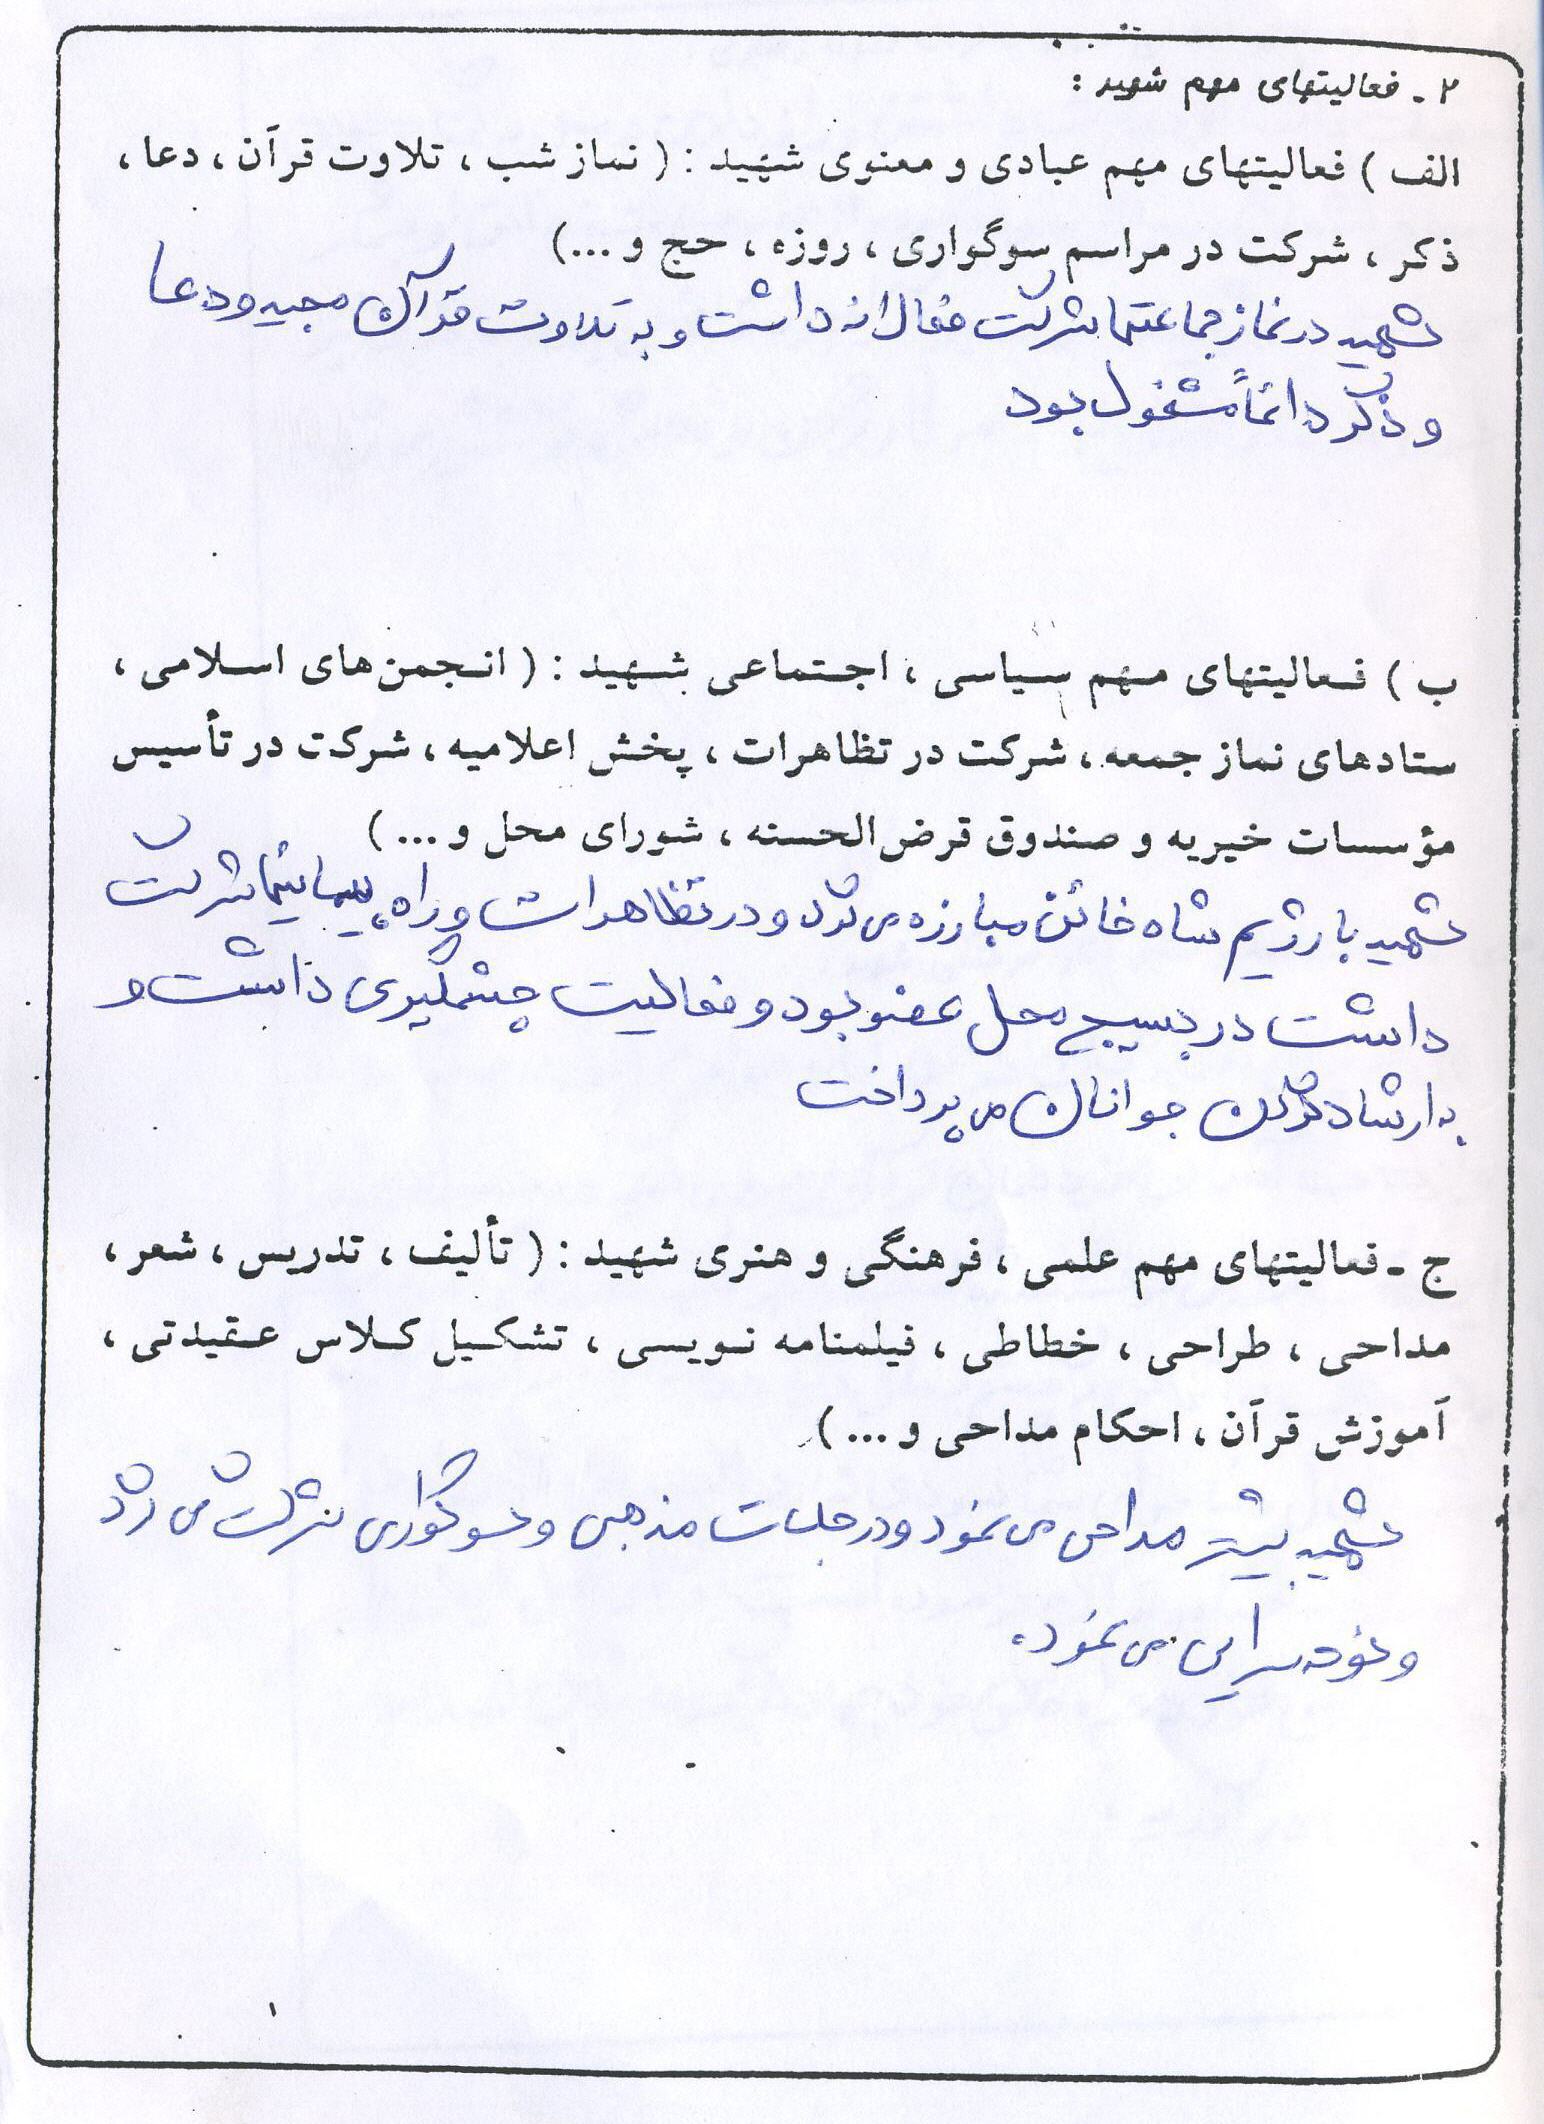 ۲ ـ فعالیتهای مهم شهید :
الف ) فعالیتهای مهم عبادی و معنوی شهید : ( نماز شب ، تلاوت قرآن ، دعا ،
ذکر ، شرکت در مراسم سوگواری ، روزه ، حج و ...)
شهید در نماز جماعتها شرکت فعالانه داشت و به تلاوت قرآن مجید و دعا
و ذکر دائماً مشغول بود
ب ) فعالیتهای مهم سیاسی ، اجتماعی شهید : ( انجمن‌های اسلامی ،
ستادهای نماز جمعه ، شرکت در تظاهرات ، پخش اعلامیه ، شرکت در تأسیس
مؤسسات خیریه و صندوق قرض‌الحسنه ، شورای محل و ... )
شهید با رژیم شاه خائن مبارزه می کرد و در تظاهرات و راه پیمائیها شرکت
داشت در بسیج محل عضو بود و فعالیت چشمگیری داشت و
به ارشاد کردن جوانان می پرداخت
ج ـ فعالیتهای مهم علمی ، فرهنگی و هنری شهید : ( تألیف ، تدریس ، شعر ،
مداحی ، طراحی ، خطاطی ، فیلمنامه نویسی ، تشکیل کلاس عقیدتی ،
آموزش قرآن ، احکام مداحی و ... )
شهید بیشتر مداحی می نمود و در جلسات مذهبی و سوگواری شرکت می کرد
و نوحه سرایی می نمود.